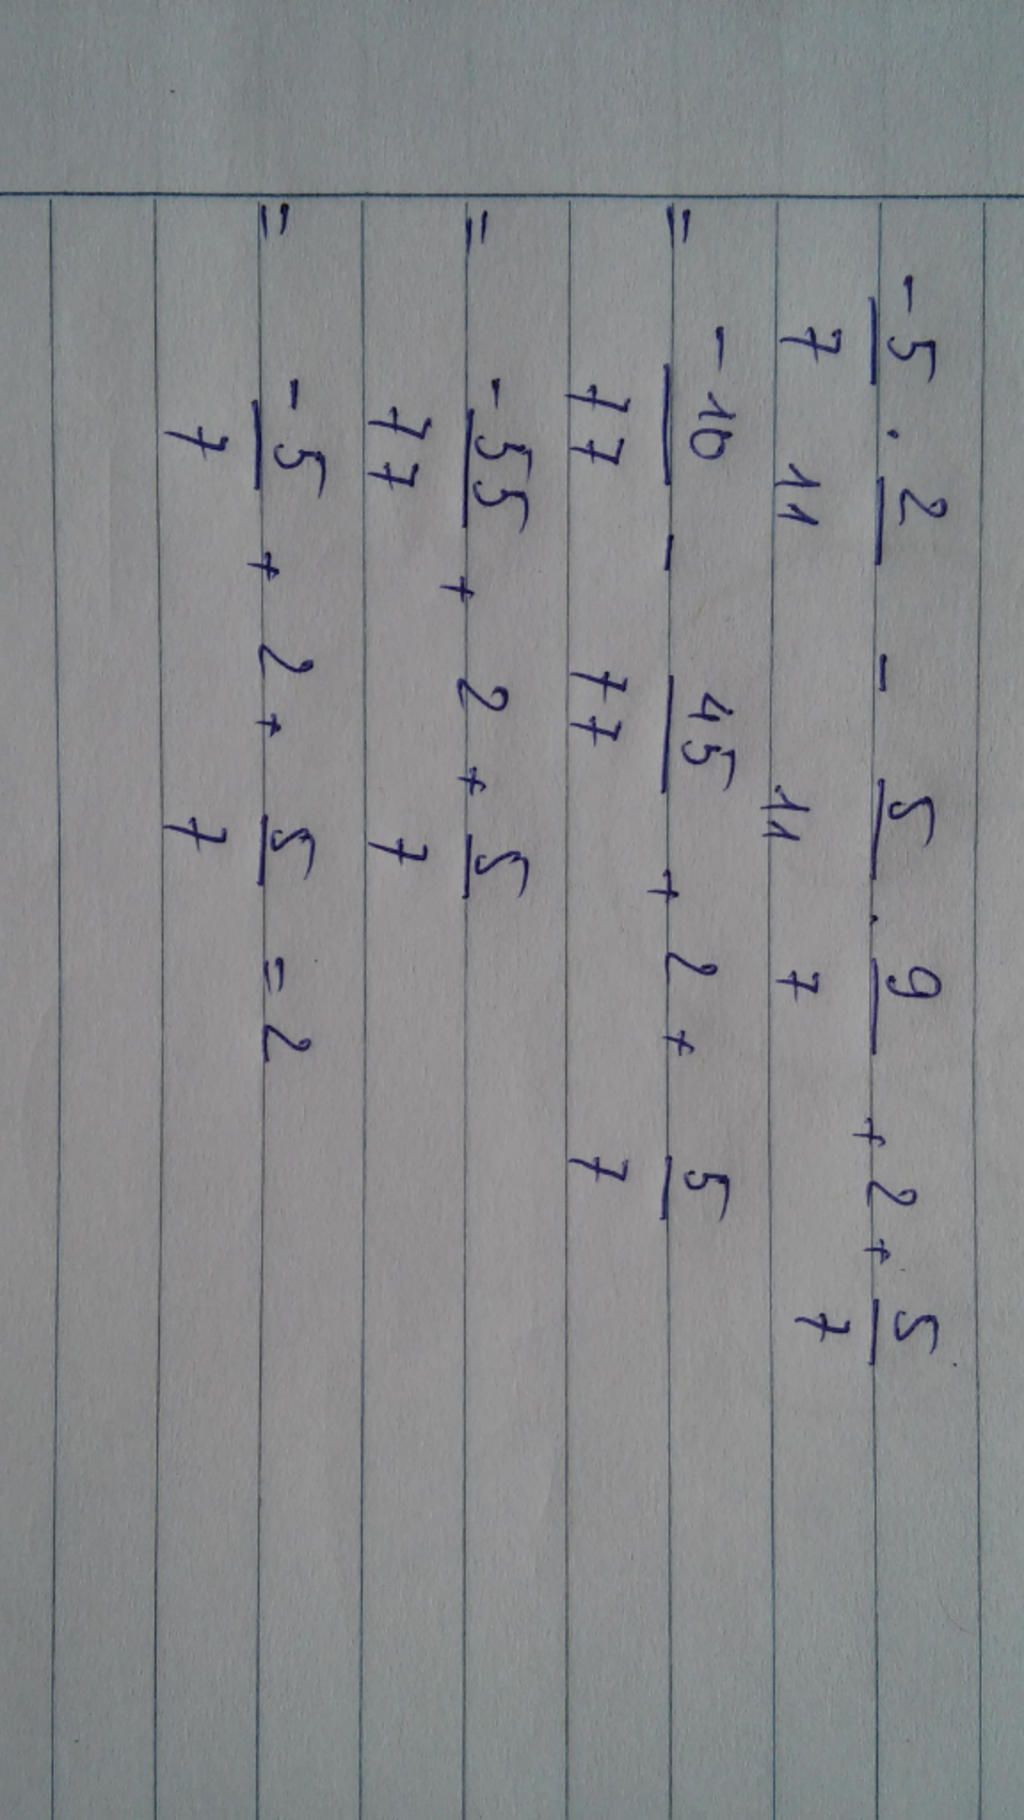 -5/7 . 2/11 - 5/11 . 9/7 + 2 + 5/7
= -10/77 - 45/77 + 2 + 5/7
= -55/77 + 2 + 5/7
= -5/7 + 2 + 5/7 = 2